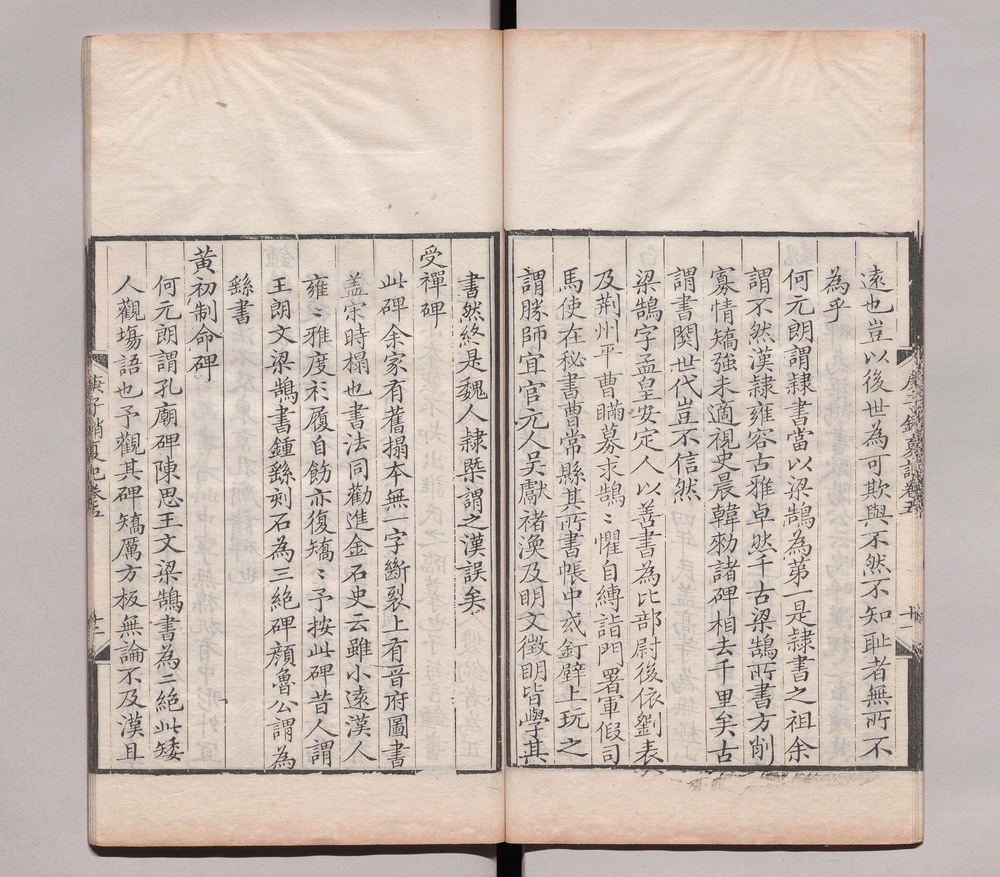 遠也豈以後世為可欺與不然不知耻者無所不
為乎
何元朗謂隸書當以梁鵠為第一是隸書之祖余
謂不然漢隸雍容古雅卓然千古梁鵠所書方削
寡情矯強未適視史晨韓勑諸碑相去千里矣古
謂書関世代豈不信然
梁鵠字孟皇安定人以善書為比部尉後依劉表
及荆州平曹瞞募求鵠〻懼自縛詣門署軍假司
馬使在秘書曹常縣其所書帳中或釘壁上玩之
謂勝師宜官元人吳獻禇渙及明文徵明皆學其
書然終是魏人隸槩謂之漢誤矣
受禪碑
此碑余家有舊搨本無一字斷裂上有晉府圖書
盖宋時榻也書法同勸進金石史云雖小遠漢人
雍〻雅度衫履自飭亦復矯〻予按此碑昔人謂
王朗文梁鵠書鍾繇刻石為三絶碑顔魯公謂為
繇書
黃初制命碑
何元朗謂孔廟碑陳思王文梁鵠書為二絶此矮
人觀塲語也予觀其碑矯厲方板無論不及漢且
庚子銷夏記卷五
十二